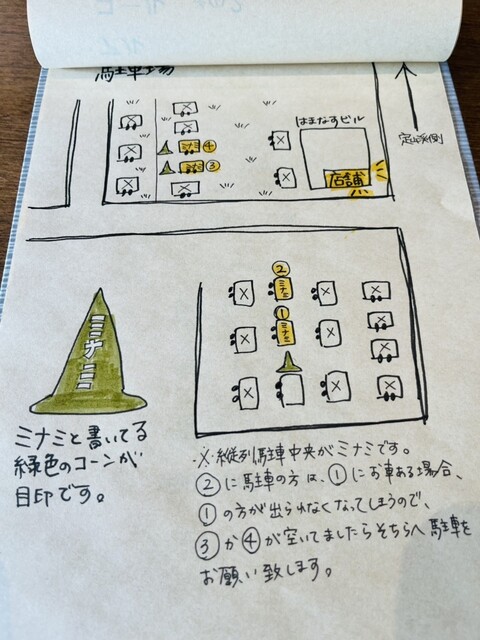 駐車場
はまなすビル
定山渓側
ミナミ④
ミナミ③
店舗
②
ミナミ
①
ミナミ
ミナミ
ミナミと書いてる
緑色のコーンが
目印です。
※縦列駐車中央がミナミです。
②に駐車の方は、①にお車ある場合、
①の方が出られなくなってしまうので、
③か④が空いてましたらそちらへ駐車を
お願い致します。